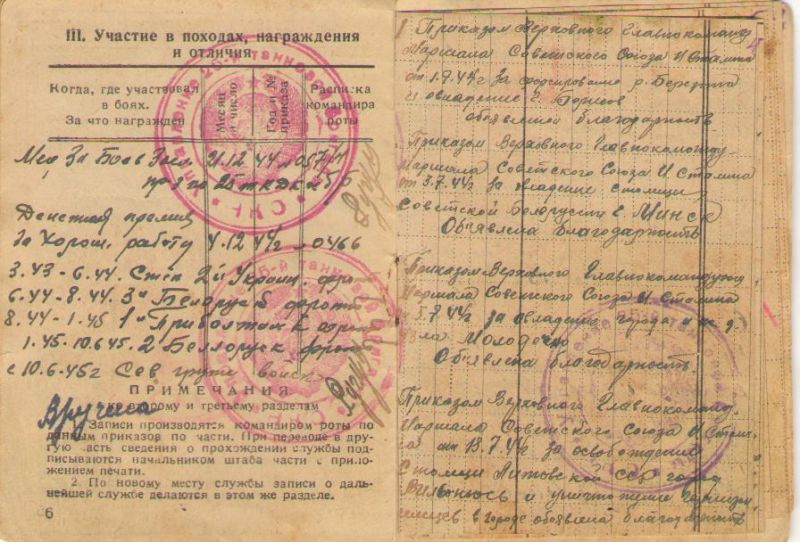 III. Участие в походах, награждения
и отличия
Когда, где участвовал
в боях.
За что награжден
Месяц
и число
Год и №
приказа
Расписка
командира
роты
Мед За Боев Засл 21.12 44
Денежная премия
за хорош. работу 4.12 44г 0466
3.43 - 6.44. Степ 2й Украин. фро
6.44 - 8.44. 3й Белорус фронт
8.44 - 1.45 1й
1.45 - 10.6.45. 2 Белорус фрон
с 10.6.45г Сев группа войск
Вручена
ПРИМЕЧАНИЯ
к второму и третьему разделам
1. Записи производятся командиром роты по
данным приказов по части. При переводе в дру-
гую часть сведения о прохождении службы под-
писываются начальником штаба части с прило-
жением печати.
2. По новому месту службы записи о даль-
нейшей службе делаются в этом же разделе.
6
Приказом Верховного Главнокоманд
Маршала Советского Союза И Сталина
от 1.7.44г за форсирование р. Березина
и овладение г. Борисов
объявлена благодарность
Приказом Верховного Главнокоманду-
Маршала Советского Союза И Сталина
от 3.7.44г за овладение столицы
Советской Белоруссии г. Минск
Объявлена Благодарность
Приказом Верховного Главнокомандующ
Маршала Советского Союза И. Сталина
5.7.44г за овладение города и ж. д.
Молодечно
Объявлена благодарность.
Приказом Верховного Главнокоманд.
Маршала Советского Союза И Стали
от 13.7.44г за освобождение
Столицы Литовской ССР города
Вильнюс и гарнизон
немцев в городе объявлена благодарность